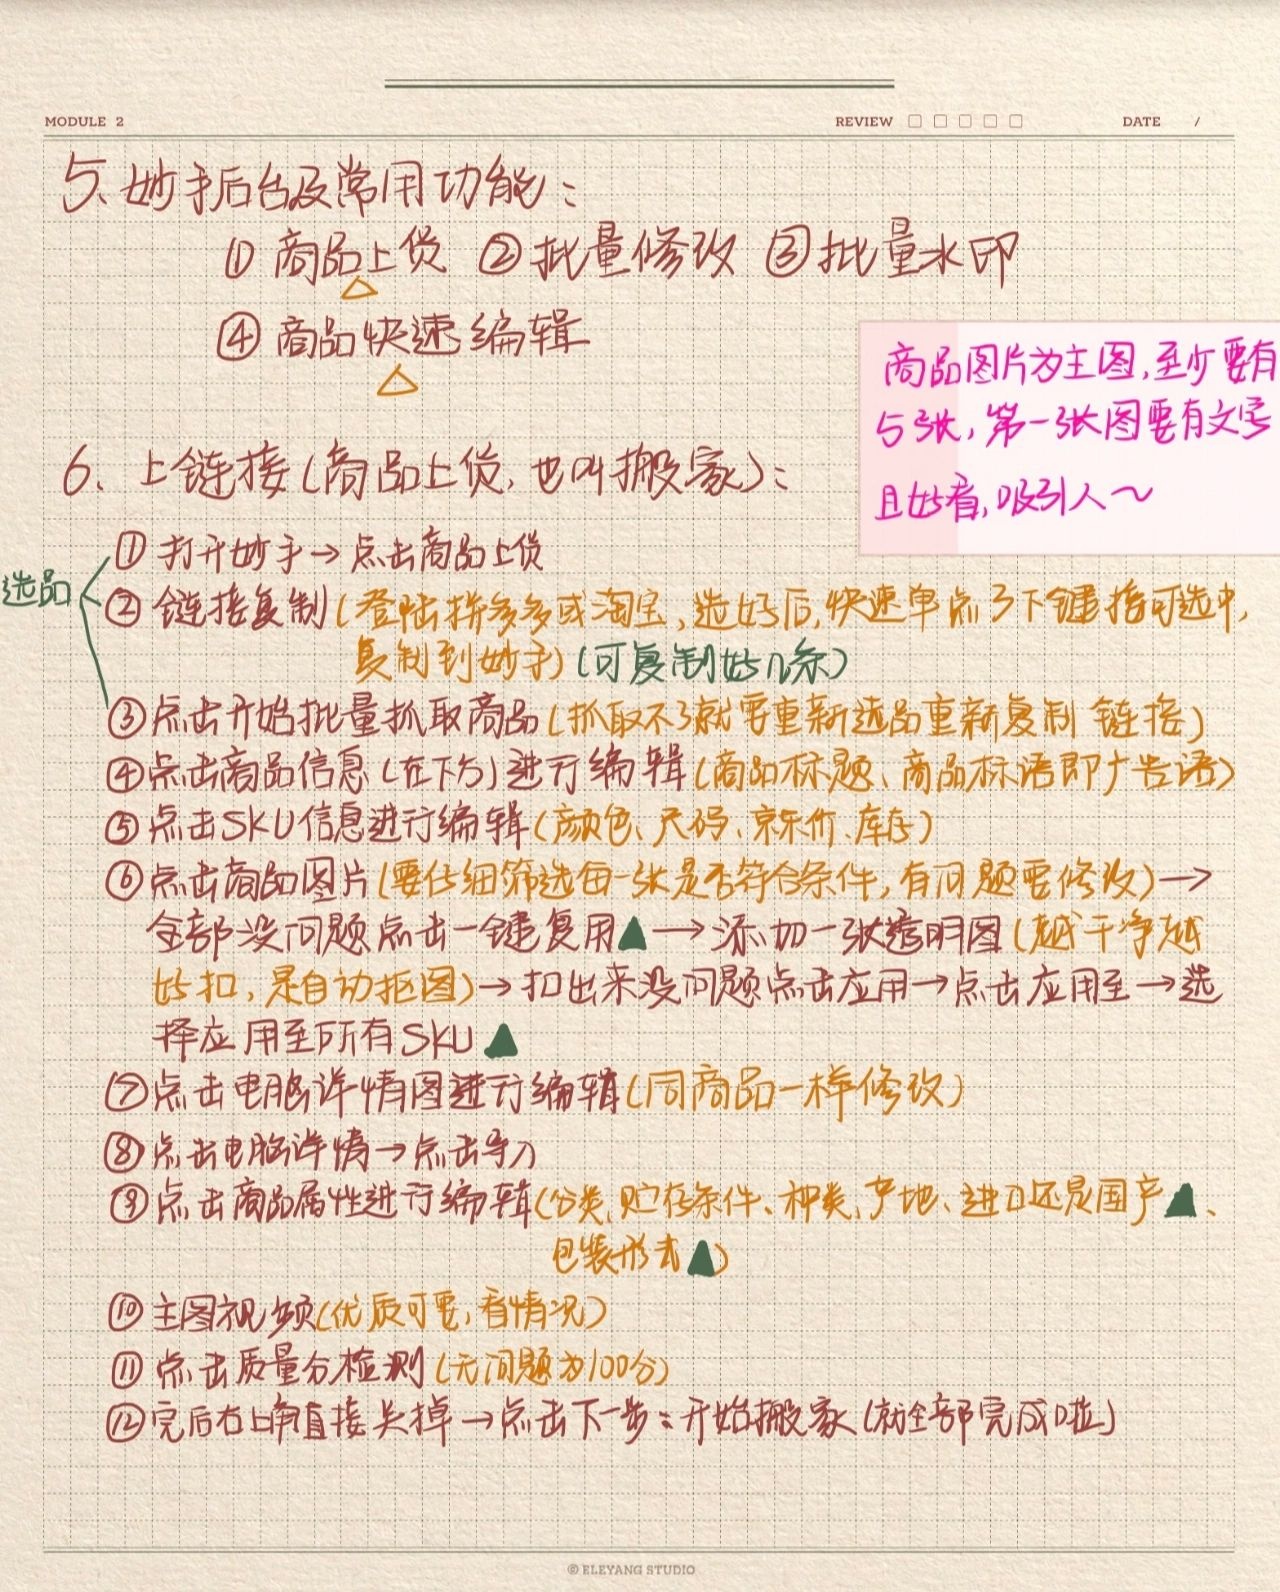 MODULE 2
REVIEW
DATE /
5、妙手后台及常用功能：
① 商品上货 ② 批量修改 ③ 批量水印
④ 商品快速编辑
商品图片为主图，至少要有
5张，第一张图要有文字
且好看，吸引人～
6、上链接（商品上货，也叫搬家）：
选品
① 打开妙手→点击商品上货
② 链接复制（登陆拼多多或淘宝，选好后，快速单点3下链接可选中，
复制到妙手）（可复制好几条）
③点击开始批量抓取商品（抓取不了就要重新选品重新复制 链接）
④点击商品信息（在下方）进行编辑（商品标题、商品标语即广告语）
⑤点击SKU信息进行编辑（颜色、尺码、京东价、库存）
⑥点击商品图片（要仔细筛选每一张是否符合条件，有问题要修改）→
全部没问题点击一键复用▲→添加一张透明图（越干净越
好扣，是自动抠图）→扣出来没问题点击应用→点击应用至→选
择应用至所有SKU▲
⑦点击电脑详情图进行编辑（同商品一样修改）
⑧点击电脑详情→点击导入
⑨点击商品属性进行编辑（分类、贮存条件、种类、产地、进口还是国产▲、
包装形式▲）
⑩主图视频（优质可要，看情况）
⑪点击质量分检测（无问题为100分）
⑫完后右上角直接关掉→点击下一步：开始搬家（就全部完成啦）
© ELEYANG STUDIO